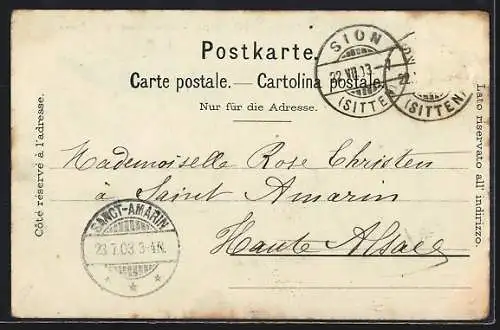 Postkarte.
Carte postale. — Cartolina postale.
Nur für die Adresse.
Côté réservé à l'adresse.
Lato riservato all' indirizzo.
SION
22 VII 03-7
(SITTEN)
22.
(SITTEN)
Mademoiselle Rose Christen
à Saint Amarin
Haute Alsace
SANCT-AMARIN
23.7.03.3-4N.